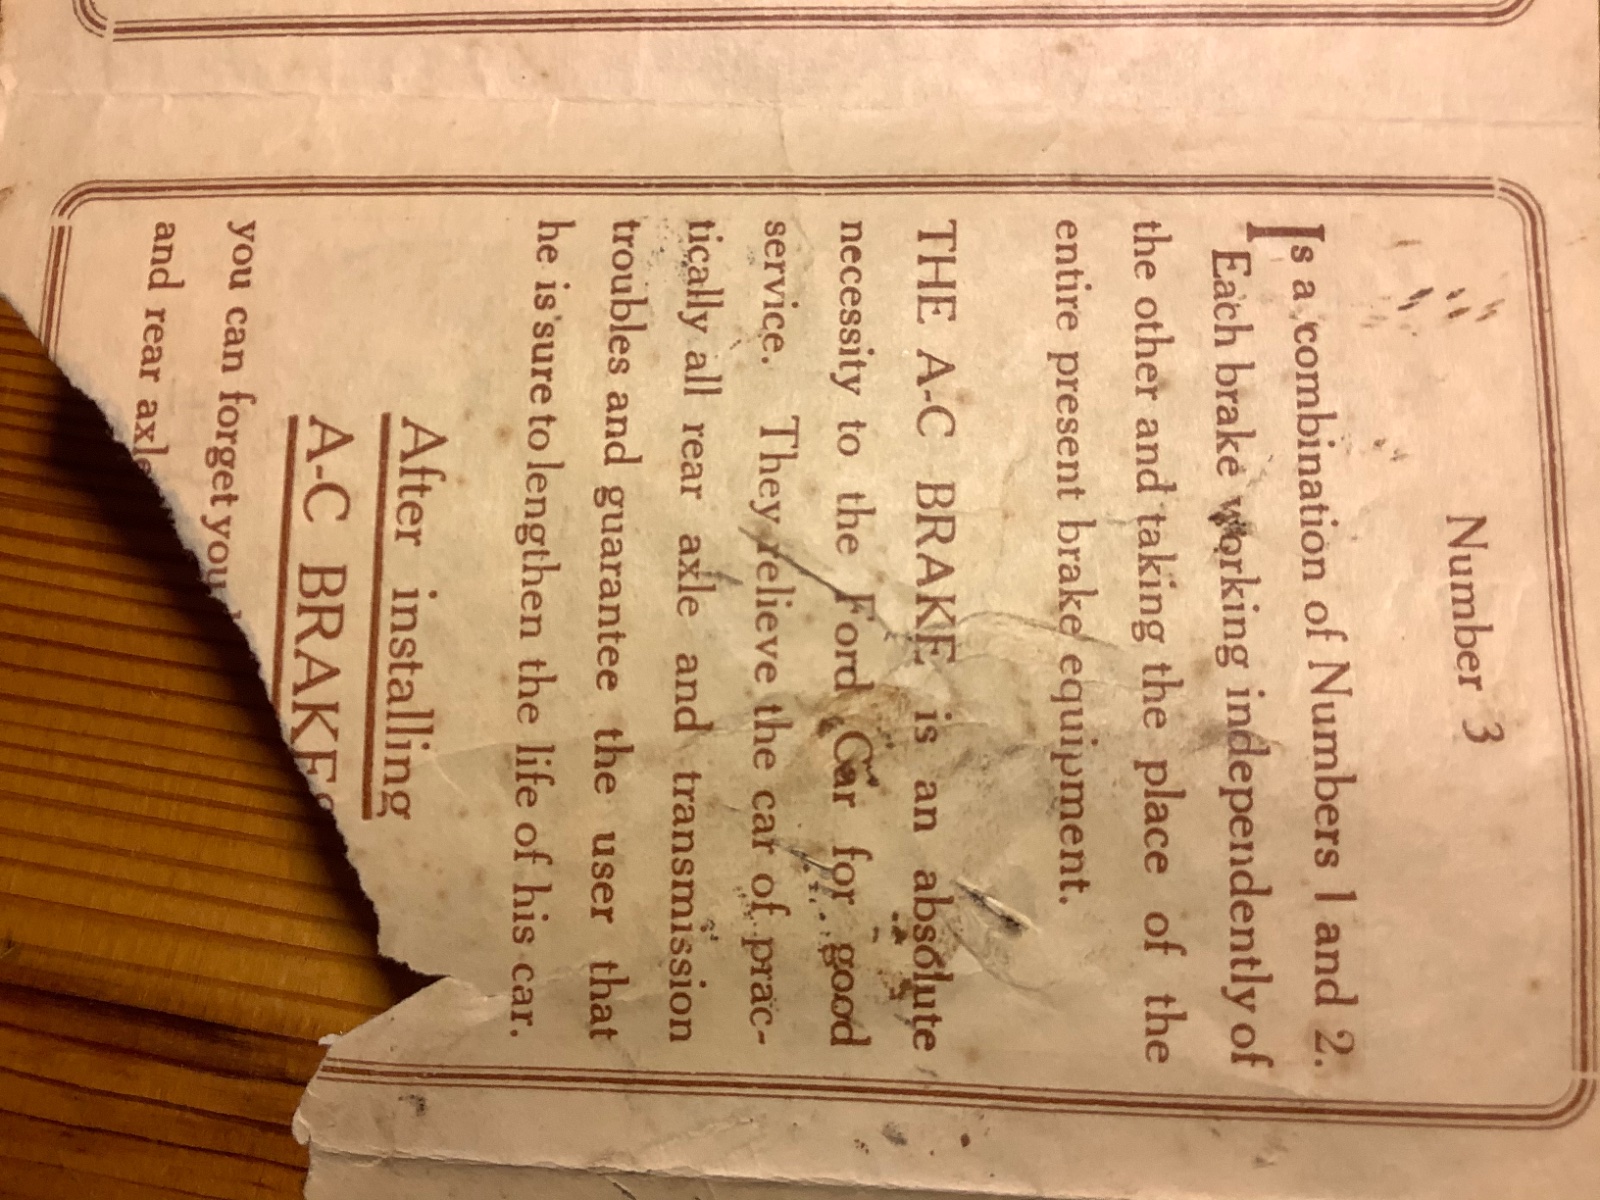 Number 3
Is a combination of Numbers 1 and 2.
Each brake working independently of
the other and taking the place of the
entire present brake equipment.
THE A-C BRAKE is an absolute
necessity to the Ford Car for good
service. They relieve the car of prac-
tically all rear axle and transmission
troubles and guarantee the user that
he is sure to lengthen the life of his car.
After installing
A-C BRAKES
you can forget you
and rear axle